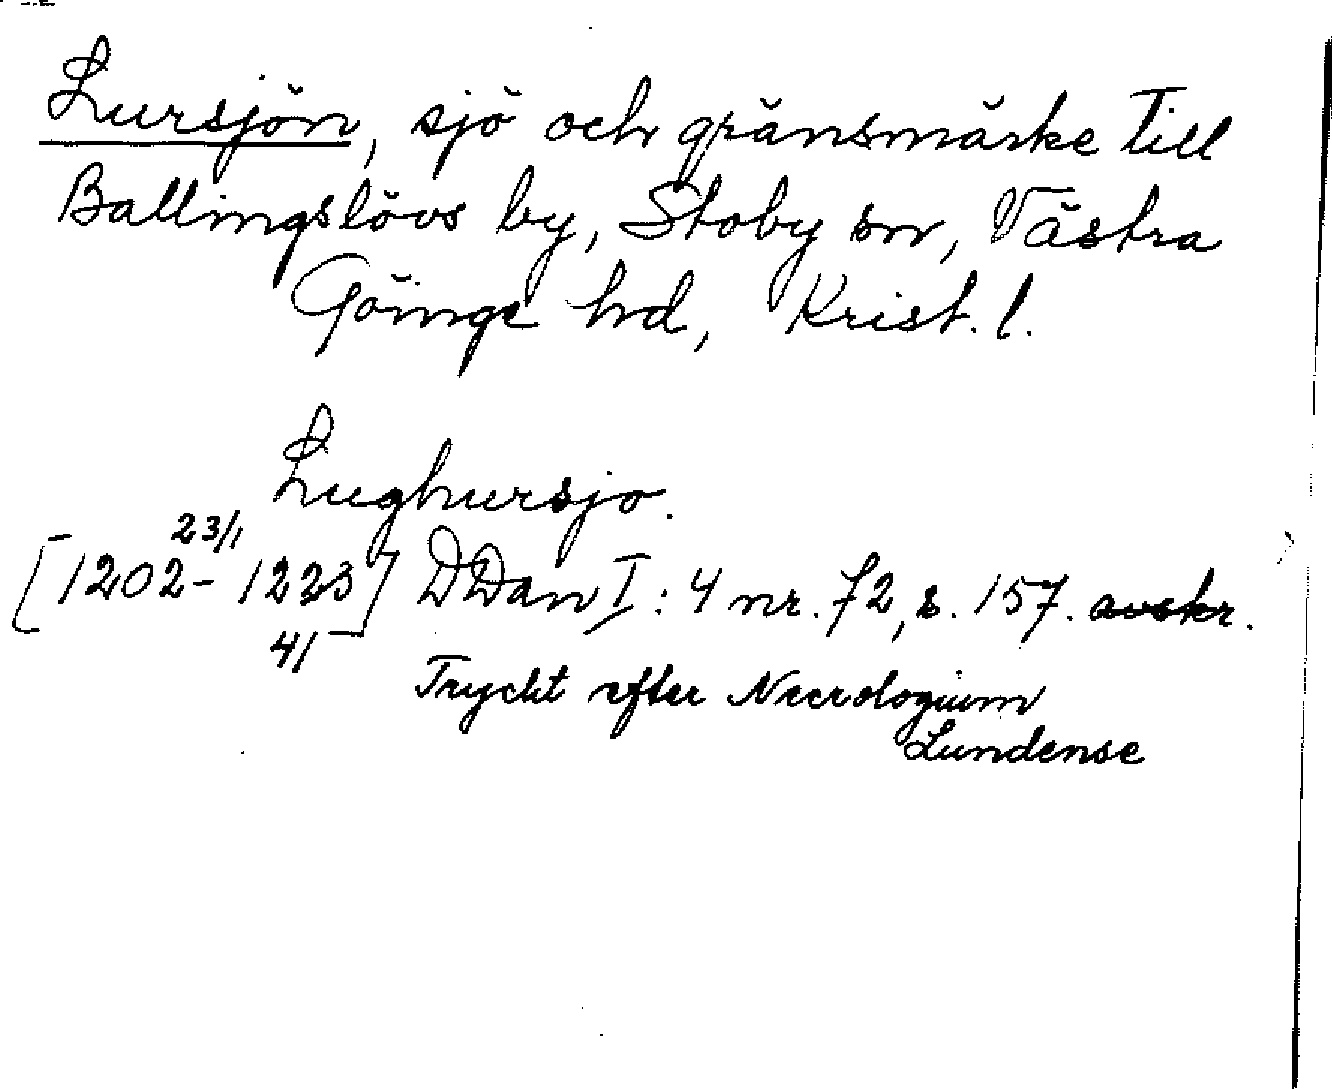 Lursjön, sjö och gränsmärke till
Ballingslövs by, Stoby sn, Västra
Göinge hd, Krist. l.
Lughursjo.
23/1
[1202 - 1223] DDan I : 4 nr. 72, s. 157. avskr.
41
Tryckt efter Necrologium
Lundense